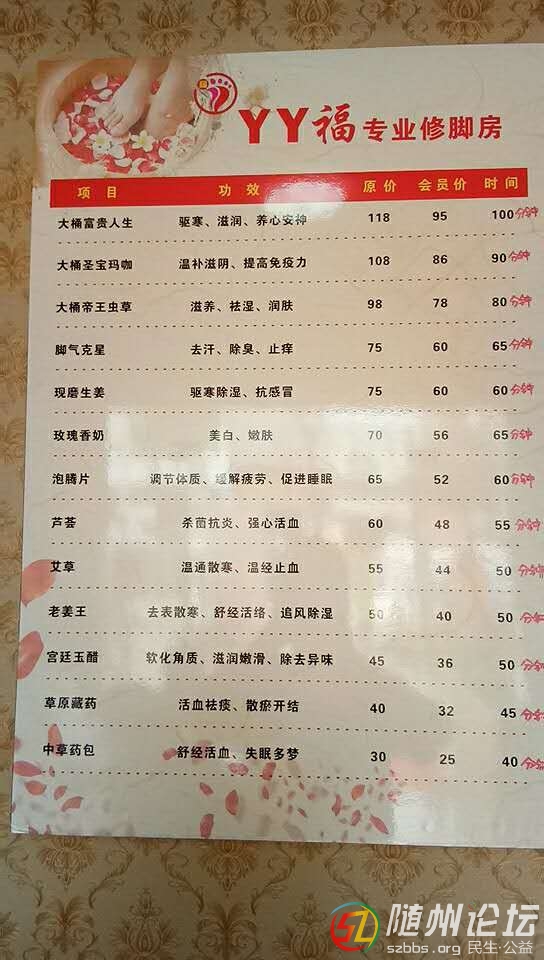 YY福专业修脚房
项目 功效 原价 会员价 时间
大桶富贵人生 驱寒、滋润、养心安神 118 95 100分钟
大桶圣宝玛咖 温补滋阴、提高免疫力 108 86 90分钟
大桶帝王虫草 滋养、祛湿、润肤 98 78 80分钟
脚气克星 去汗、除臭、止痒 75 60 65分钟
现磨生姜 驱寒除湿、抗感冒 75 60 60分钟
玫瑰香奶 美白、嫩肤 70 56 65分钟
泡腾片 调节体质、缓解疲劳、促进睡眠 65 52 60分钟
芦荟 杀菌抗炎、强心活血 60 48 55分钟
艾草 温通散寒、温经止血 55 44 50分钟
老姜王 去表散寒、舒经活络、追风除湿 50 40 50分钟
宫廷玉醋 软化角质、滋润嫩滑、除去异味 45 36 50分钟
草原藏药 活血祛痰、散瘀开结 40 32 45分钟
中草药包 舒经活血、失眠多梦 30 25 40分钟
随州论坛
szbbs.org 民生·公益